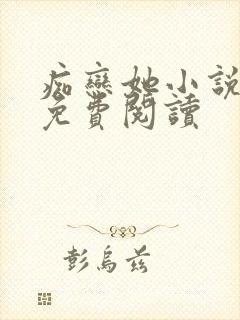 痴戀她小說
免費閱讀
彭烏茲